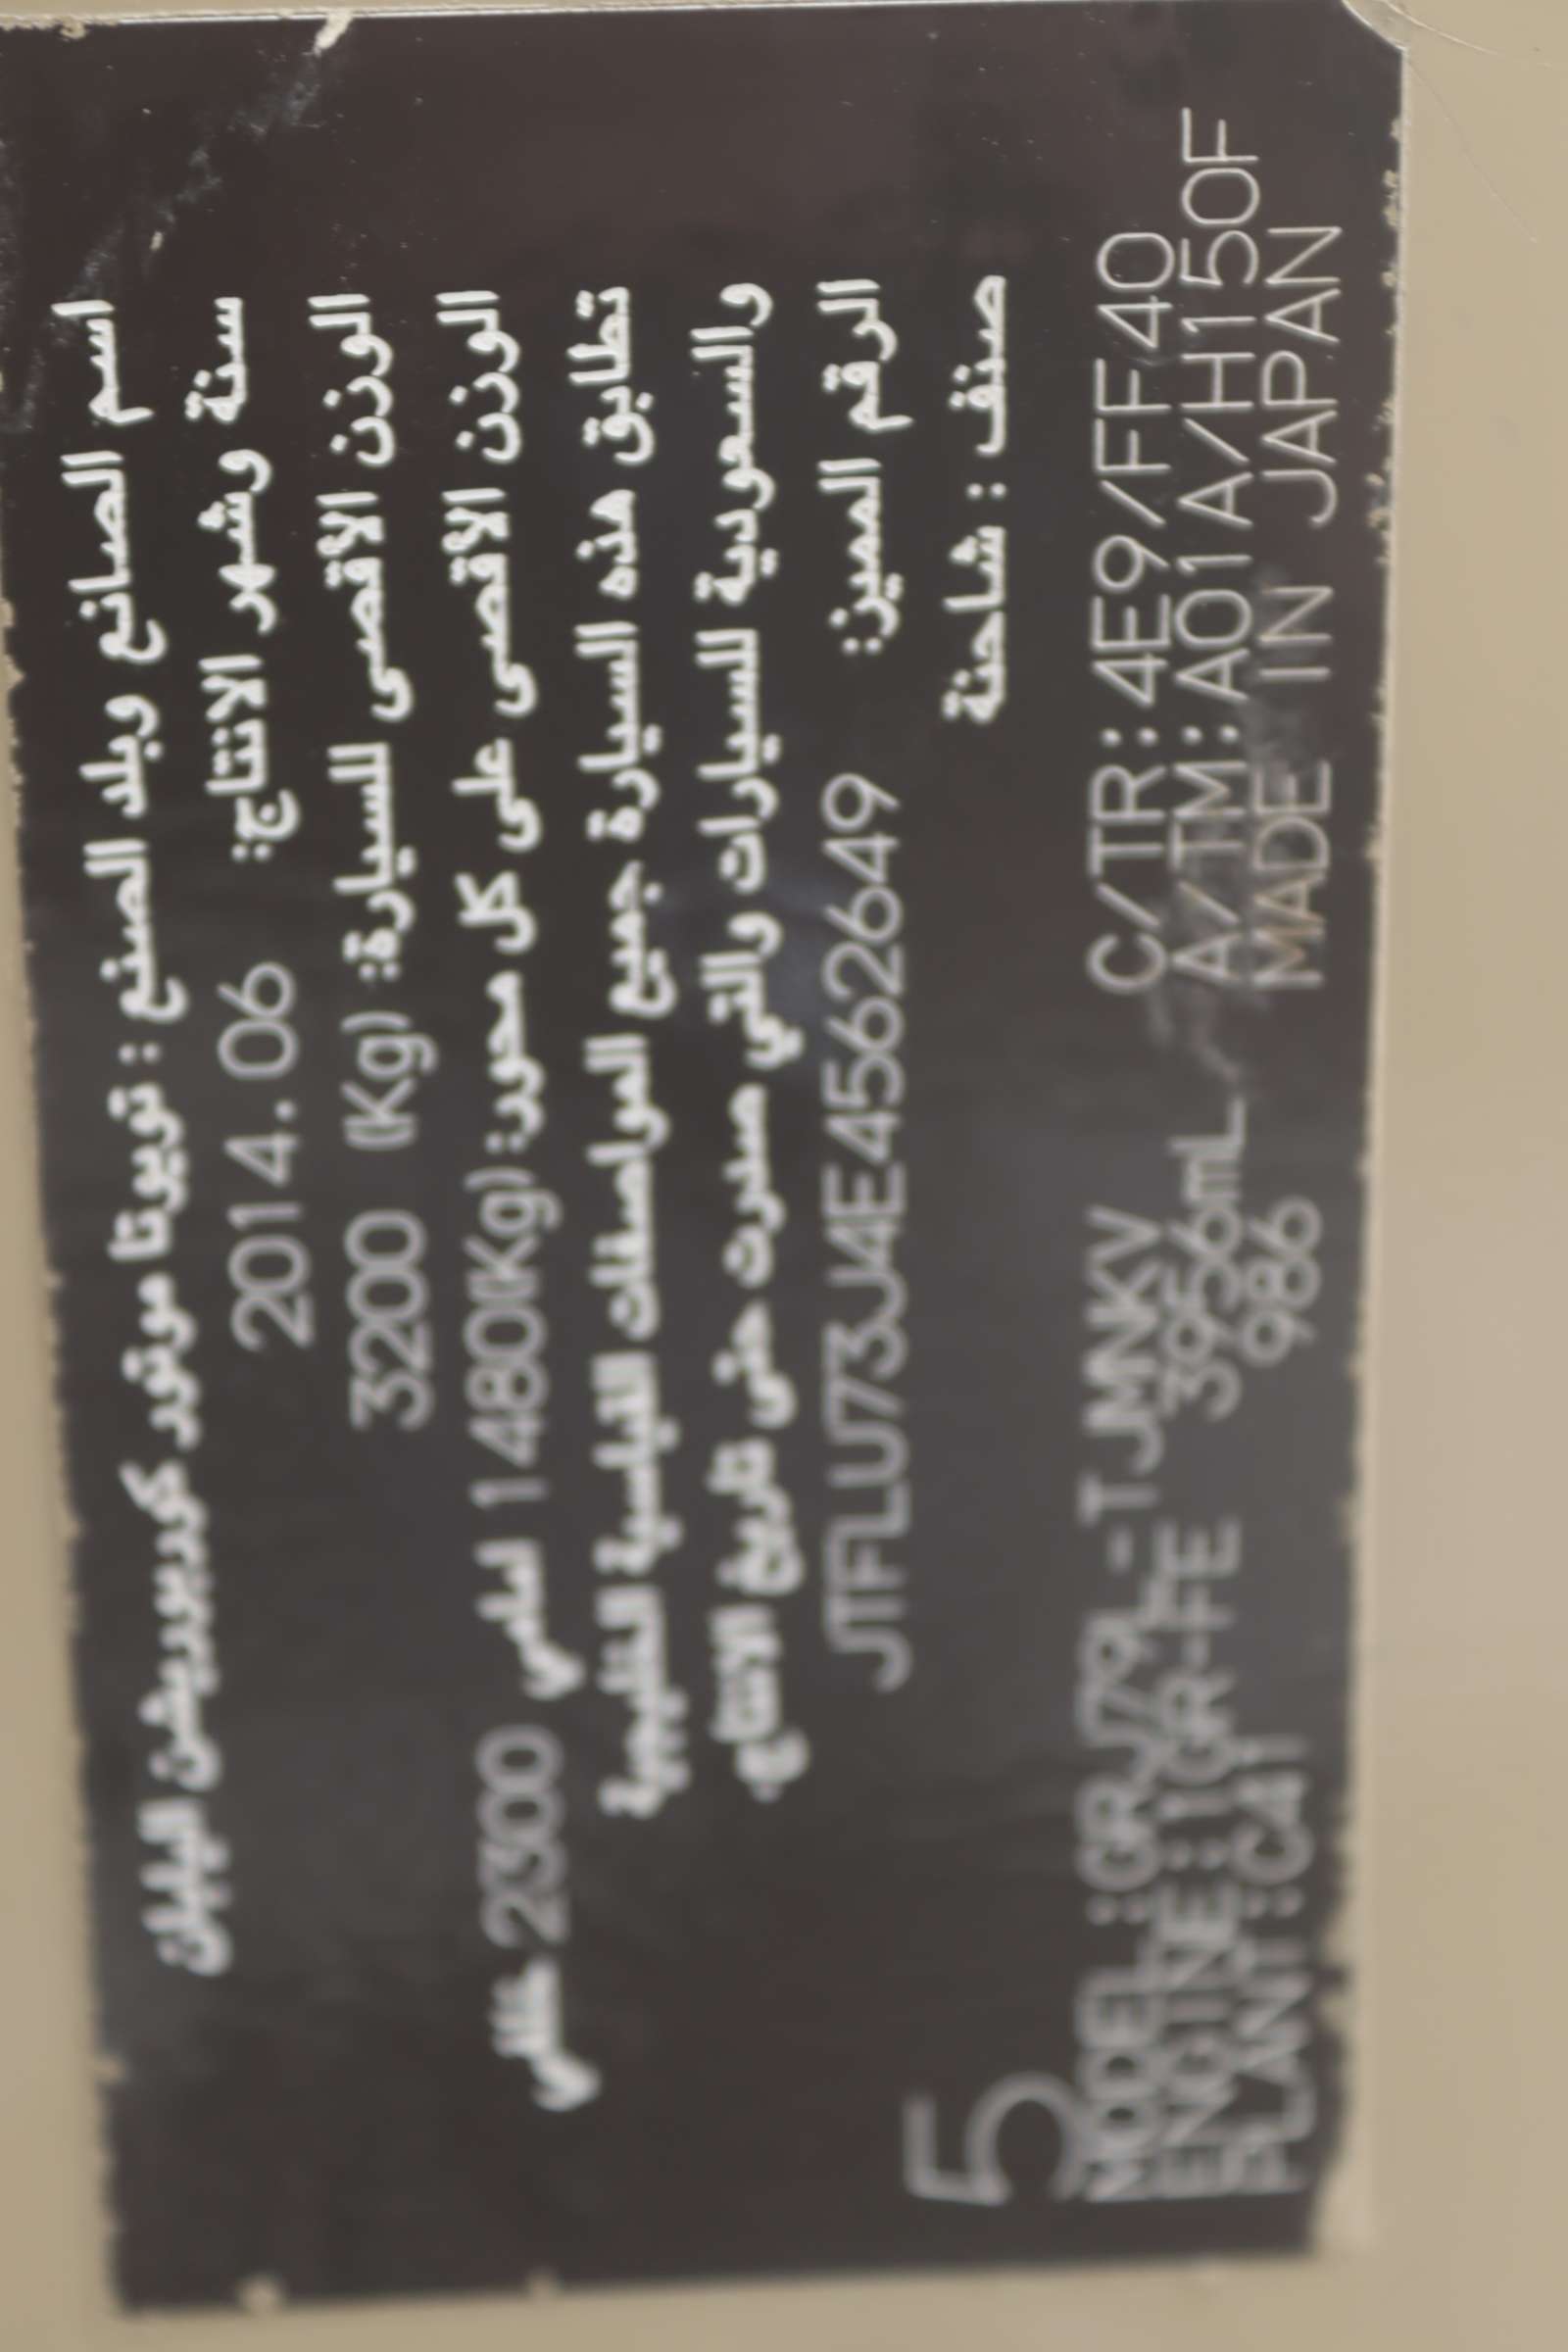 اسم الصانع وبلد الصنع : تويوتا موتور كوربوريشن اليابان
سنة وشهر الانتاج: 2014.06
الوزن الأقصى للسيارة: (Kg) 3200
الوزن الأقصى على كل محور: (Kg) 1480 امامي 2300 خلفي
تطابق هذه السيارة جميع المواصفات القياسية الخليجية
والسعودية للسيارات والتي صدرت حتى تاريخ الانتاج.
الرقم المميز: JTFLU73J4E4562649
صنف : شاحنة
5
MODEL :GRJ79L-TJMNKV C/TR:4E9/FF40
ENGINE:1GR-FE 3956mL A/TM:A01A/H150F
PLANT:C41 986 MADE IN JAPAN